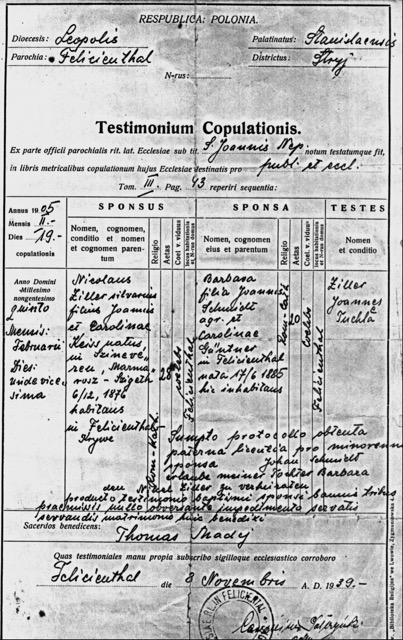 RESPUBLICA: POLONIA.
Dioecesis: Leopolis Palatinatus: Stanislaensis
Parochia: Felicienthal Districtus: Stryj
N-rus:
Testimonium Copulationis.
Ex parte officii parochialis rit. lat. Ecclesiae sub tit. S. Joannis Nep. notum testatumque fit,
in libris metricalibus copulationum hujus Ecclesiae destinatis pro publ. et eccl.
Tom. III. Pag. 43 reperiri sequentia:
Annus 1905
Mensis II.
Dies 19.
copulationis
SPONSUS
Nomen, cognomen, conditio et nomen et cognomen parentum
Religio
Aetas
Coel. v. viduus
locus habitationis et N-rus domus
SPONSA
Nomen, cognomen eius et parentum
Religio
Aetas
Coel. v. viduus
locus habitationis et N-rus domus
TESTES
Nomen et conditio
Anno Domini
Millesimo
nongentesimo
quinto
Mensis:
Februarii
Dies:
undevice-
sima
Nicolaus
Ziller silvarius
filius Joannis
et Carolinae
Keiss natus,
in Szineve-
ren, Marma-
rosz-Szigeth
6/12, 1876
habitans
in Felicienthal
Rom-Kath.
28
coelebs
Felicienthal
Barbara
filia Joannis
Schmidt
agr. et
Carolinae
Güntner
in Felicienthal
nata 17/6 1885
hic inhabitans
Rom-Cath.
coelebs
Felicienthal
Ziller
Joannes
Sumpto protocollo obtenta
paterna licentia pro minorenni
sponsa Johan Schmidt
erlaube meiner Tochter Barbara
den Ziller zu verheiraten
producto testimonio baptismi sponsi bannis tribus
praemissis nullo obversante impedimento servatis
servandis matrimonio huic benedixi
Sacerdos benedicens: Thomas Mady
Quas testimoniales manu propria subscribo sigilloque ecclesiastico corroboro
Felicienthal die 8 Novembris A. D. 1939.-